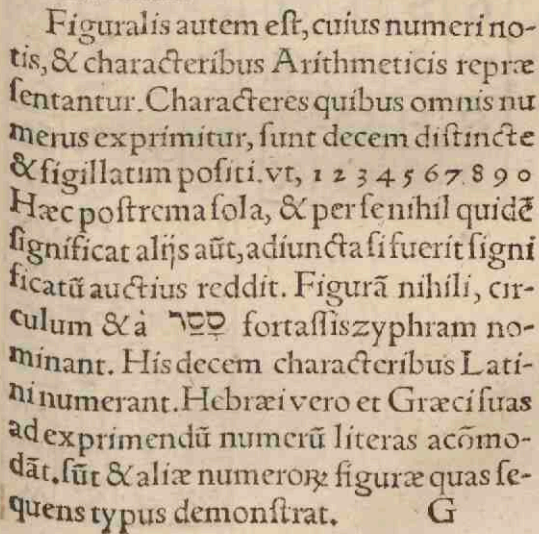 Figuralis autem eſt, cuius numeri no-
tis, & characteribus Arithmeticis repræ
ſentantur. Characteres quibus omnis nu
merus exprimitur, ſunt decem diſtincte
& ſigillatim poſiti. vt, 1 2 3 4 5 6 7. 8 9 0
Hæc poſtrema ſola, & per ſe nihil quidē
ſignificat alijs aūt, adiuncta ſi fuerit ſigni
ficatū auctius reddit. Figurā nihili, cir-
culum & à סָפַר fortaſſis zyphram no-
minant. His decem characteribus Lati-
ni numerant. Hebræi vero et Græci ſuas
ad exprimendū numerū literas acōmo-
dāt. ſūt & aliæ numeroꝝ figuræ quas ſe-
quens typus demonſtrat. G